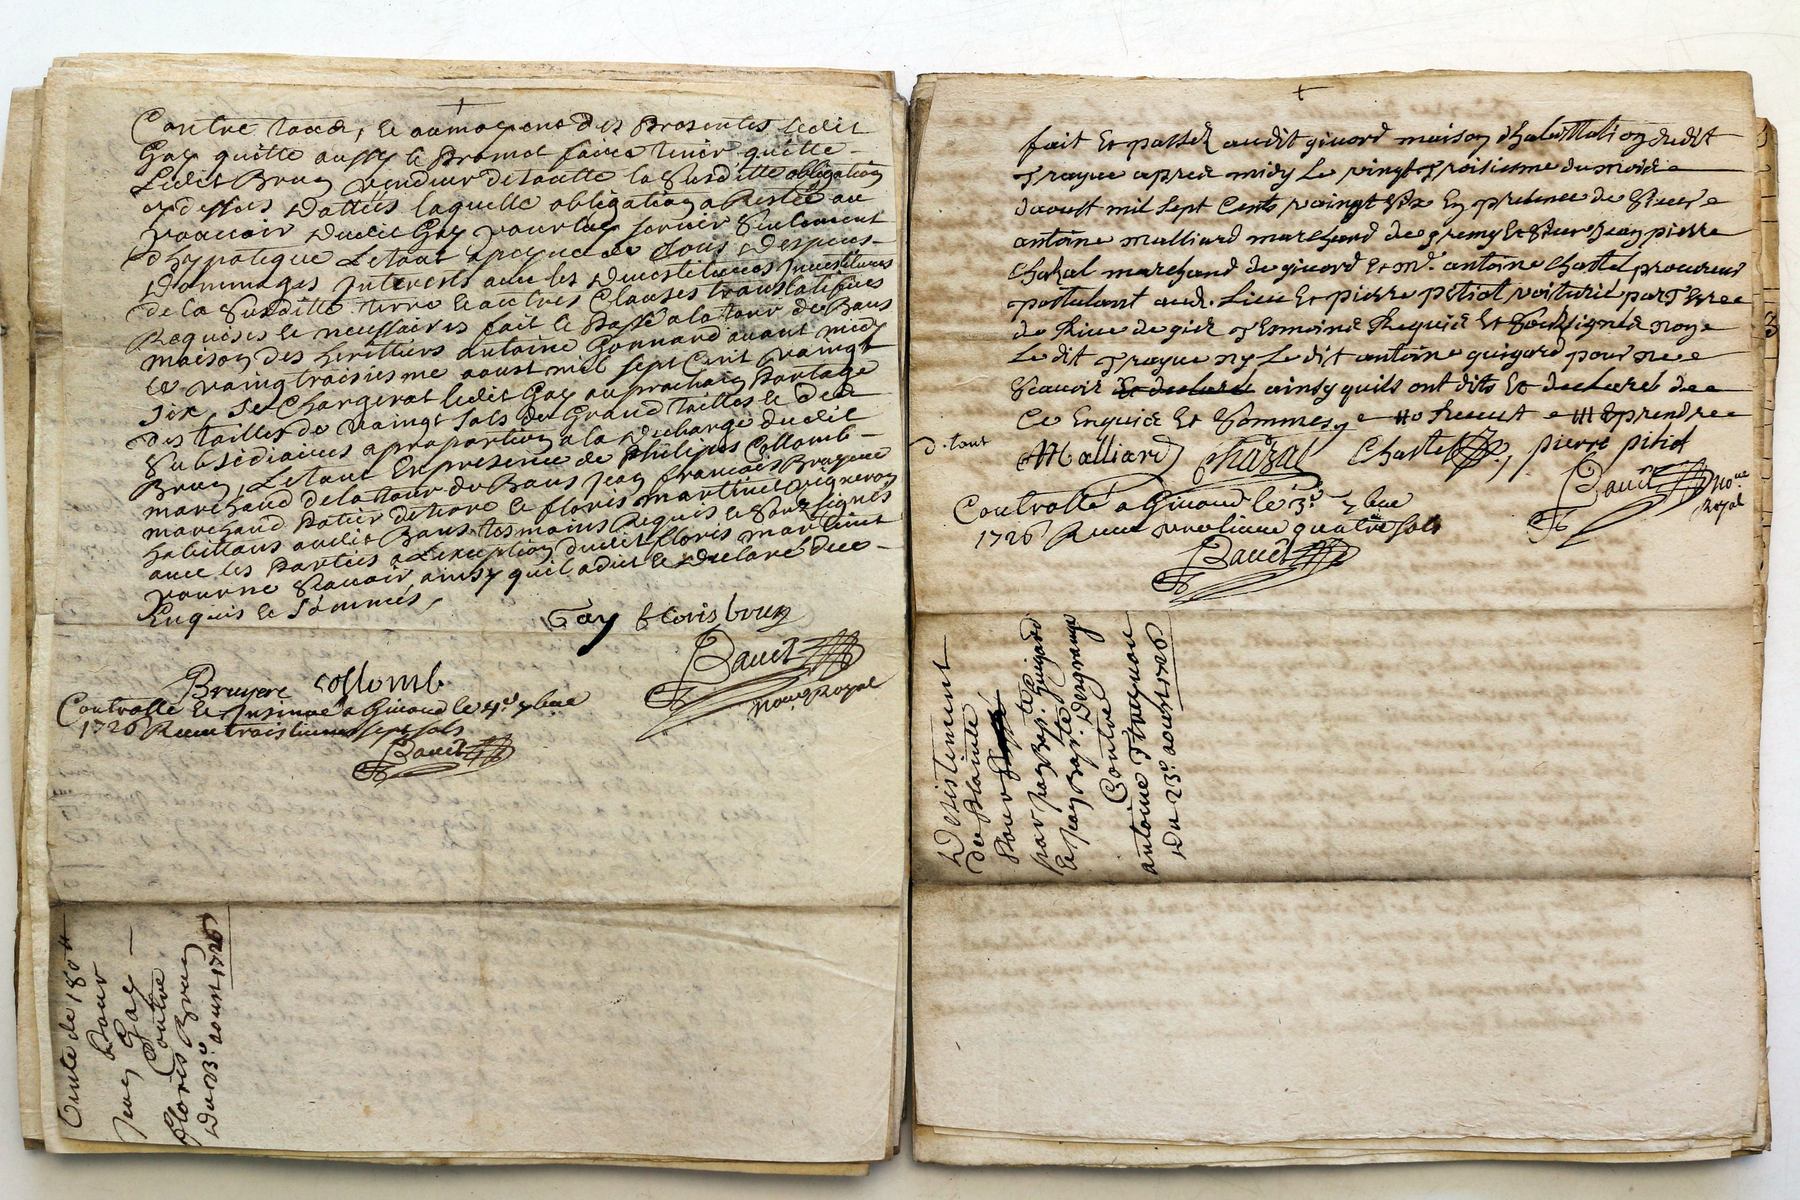 Contre tanda, et aumoyens des presentes ledit
Gay quitte aussy et promet faire tenir quitte
Ledit Brun vendeur de toutte la susditte obligation
cydessus dattée laquelle obligation a Restée au
pouvoir dudit Gay pour luy servir seulement
dhypoteque Letout a peyne de tous despens
Dommages Interests avec les devestitures Investitures
de la susditte terre et autres Clauses translatifves
Requises et necessaires fait et passé a la tour de Bans
maison des heritiers antoine Gonnard avant midy
le vaingtroisiesme aoust mil sept Cent vaingt
six, se Chargerat ledit Gay au prochain partage
des tailles de vaingt sols de Grand tailles et des
Subsidiaires a proportion a la decharge dudit
Brun, Letout En presence de philipes Collomb
marchand de la tour de Bans Jean francois Bruyere
marchand potier de terre et floris martinet vigneron
habittans audit Bans tesmoins Requis et soussignés
avec les parties a Lexception dudit floris martinet
pour ne scavoir ainsy quil a dit et declaré dee
Enquis et sommés,
Gay floris brun
Bruyere collomb
Bavet
nore Royal
Controllé et Insinué a Givord le 4e 7bre
1726 Receu trois livres sept sols
Bavet
Vente de 180 #
pour
Jean Gay
Contre
floris Brun
Du 23e aoust 1726
fait Et passé audit givord maison dhabittation dudit
Trayne apres midy Le vingt Troisieme du mois de
daoust mil sept Cents vaingt six En presence de sieur
antoine malliard marchand de gremy Et sieur Jean pierre
Chazal marchand de givord Et Me. antoine Chastel procureur
postulant aud. Lieu Et pierre pitiot voiturié par Terre
de Rive de gier Temoins Requis Et soussignés non
Le dit Trayne ny Le dit antoine guigard pour ne
scavoir Et declaré ainsy quils ont dits Et declarés de
Ce Enquis Et sommes,
d. tout
Malliard Chazal Chastel, pierre pitiot
Bavet nore
Royal
Controllé a Givord le 3e 7bre
1726 Receu une livre quattre sols
Bavet
Desistement
de plainte
pour
par Jean Bapte. Guigard
et Jean Bapte. Desgrange
Contre
antoine
Du 23e. aoust 1726